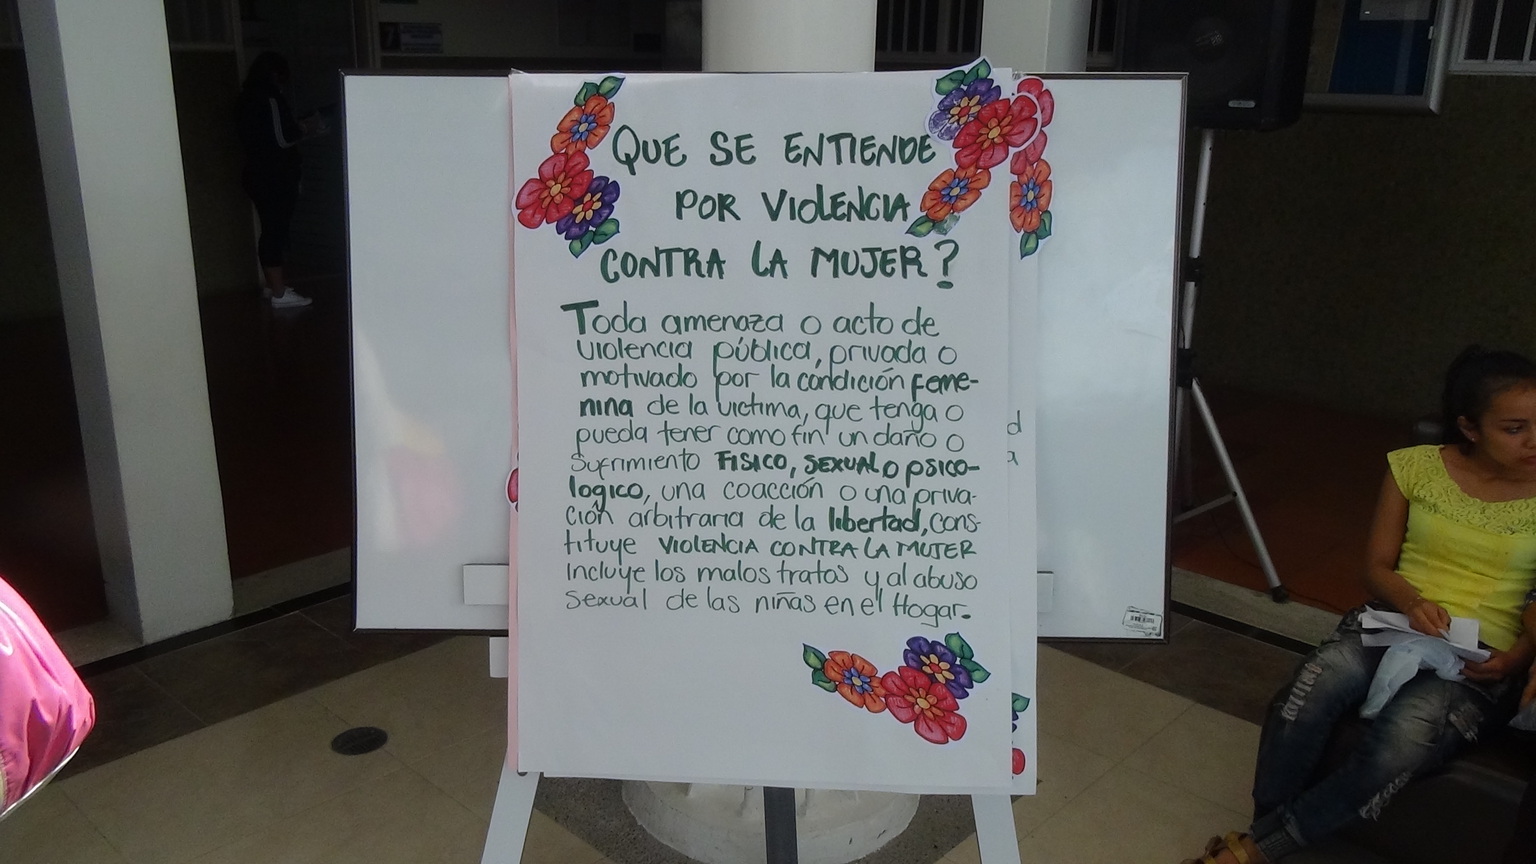 QUE SE ENTIENDE
POR VIOLENCIA
CONTRA LA MUJER?
Toda amenaza o acto de
violencia pública, privada o
motivado por la condición feme-
nina de la victima, que tenga o
pueda tener como fin un daño o
sufrimiento FISICO, SEXUAL O PSICO-
lógico, una coacción o una priva-
ción arbitraria de la libertad, cons-
tituye VIOLENCIA CONTRA LA MUJER
Incluye los malos tratos y al abuso
sexual de las niñas en el Hogar.